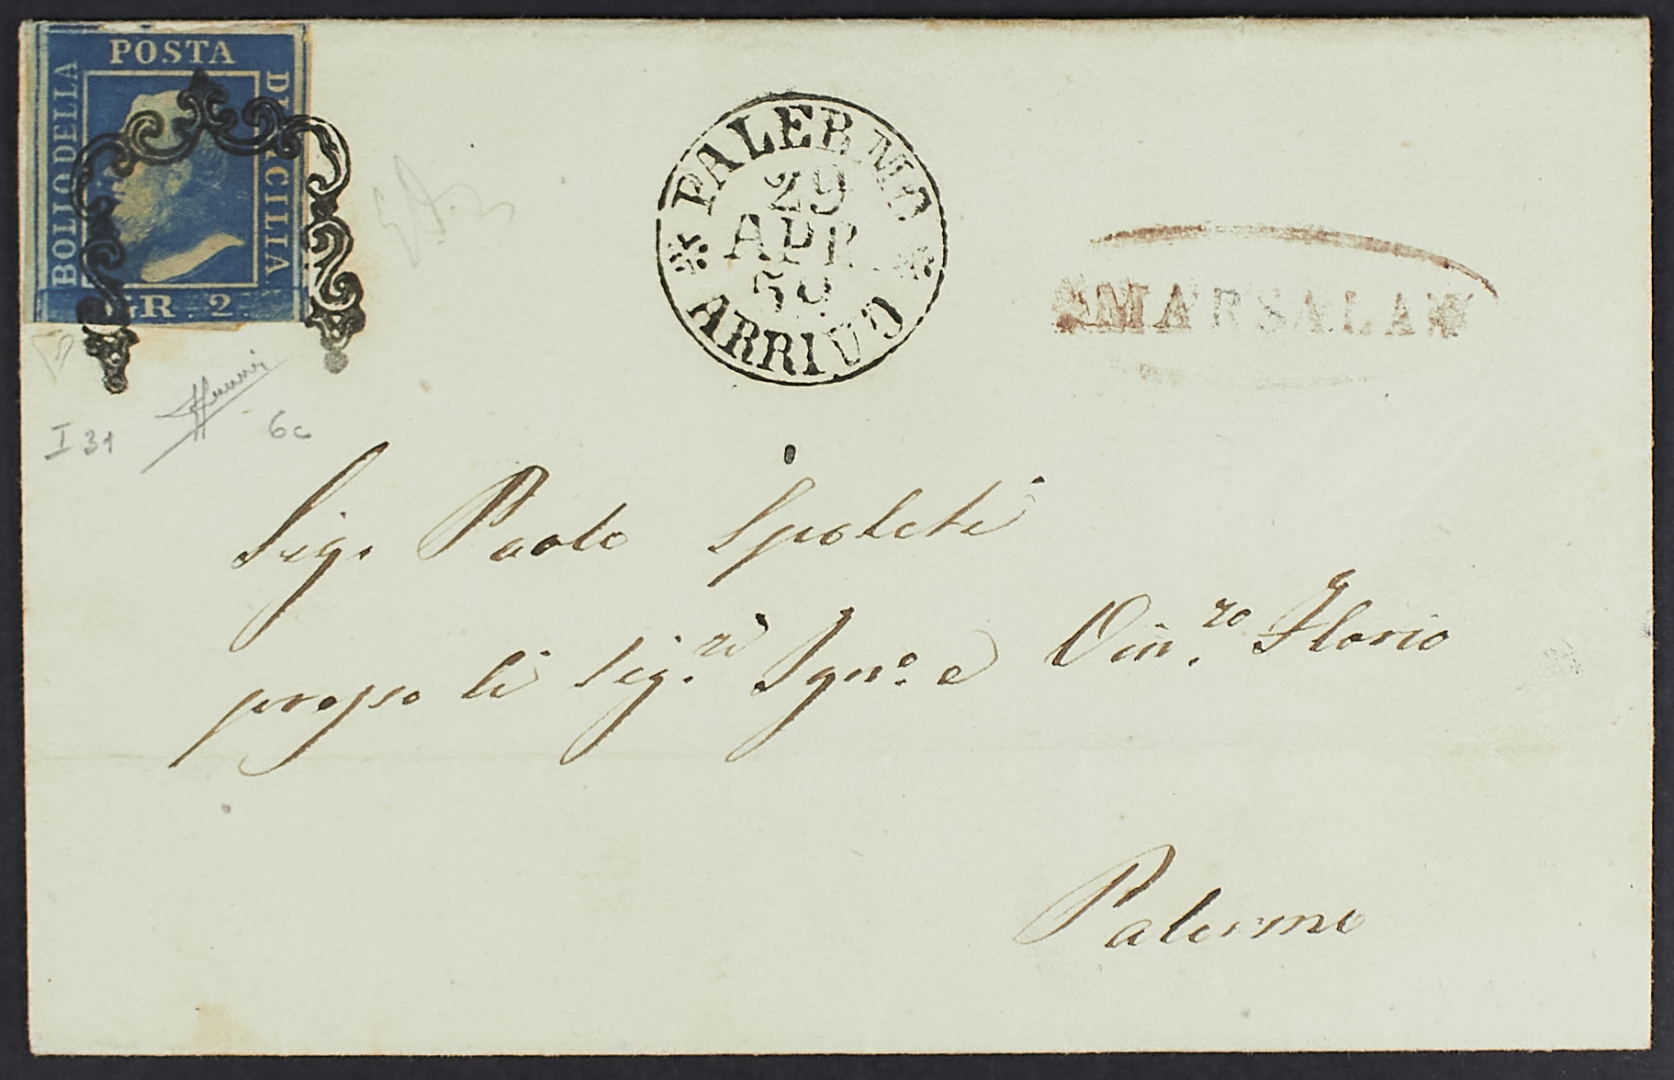 POSTA
BOLLO DELLA
DI SICILIA
GR. 2.
PALERMO
29
APR.
59
ARRIVO
MARSALA
I 31
6c
Sig. Paolo Spoleti
presso li Sig.ri Ign.o e Vin.zo Florio
Palermo